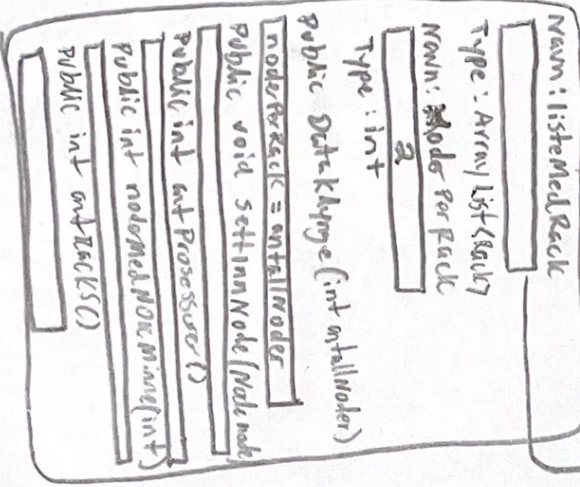 Navn: listeMedRack
Type: ArrayList<Rack>
Navn: NoderPerRack
2
Type: int
public DataKlynge(int antallNoder)
noderPerRack = antallNoder
public void settInnNode(Node node)
public int antProsessorer()
public int noderMedNokMinne(int)
public int antRacks()